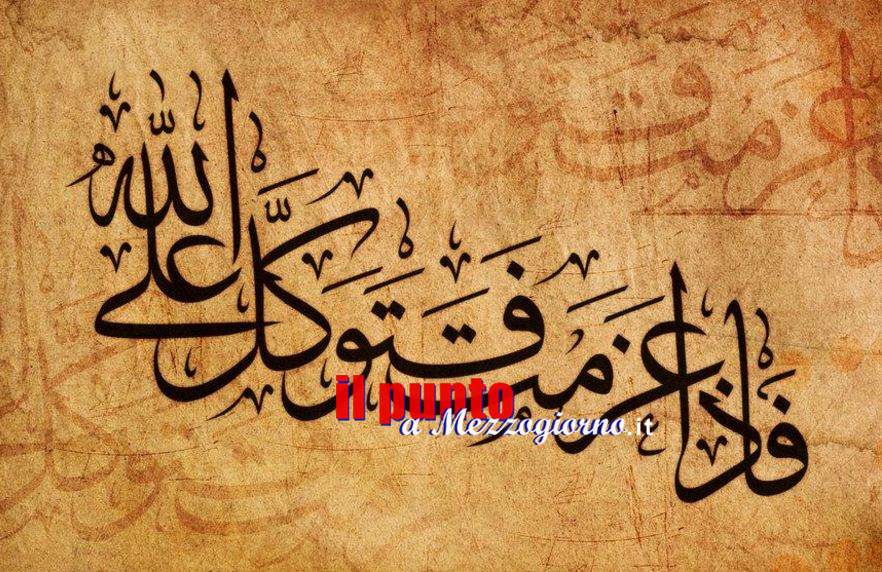 فَإِذَا عَزَمْتَ فَتَوَكَّلْ عَلَى اللَّهِ
il punto
a Mezzogiorno.it